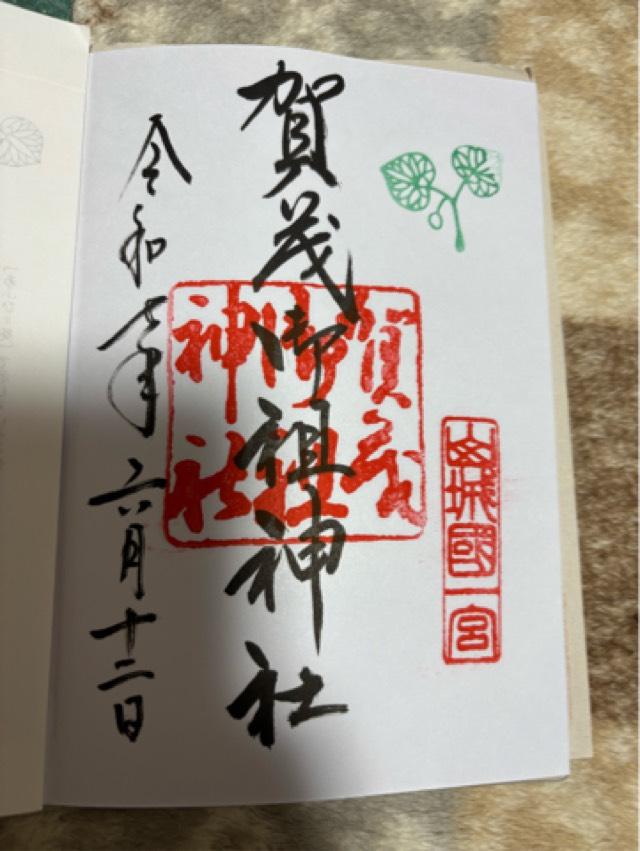 山城國一宮
賀茂御祖神社
賀茂
御祖
神社
令和七年六月十二日